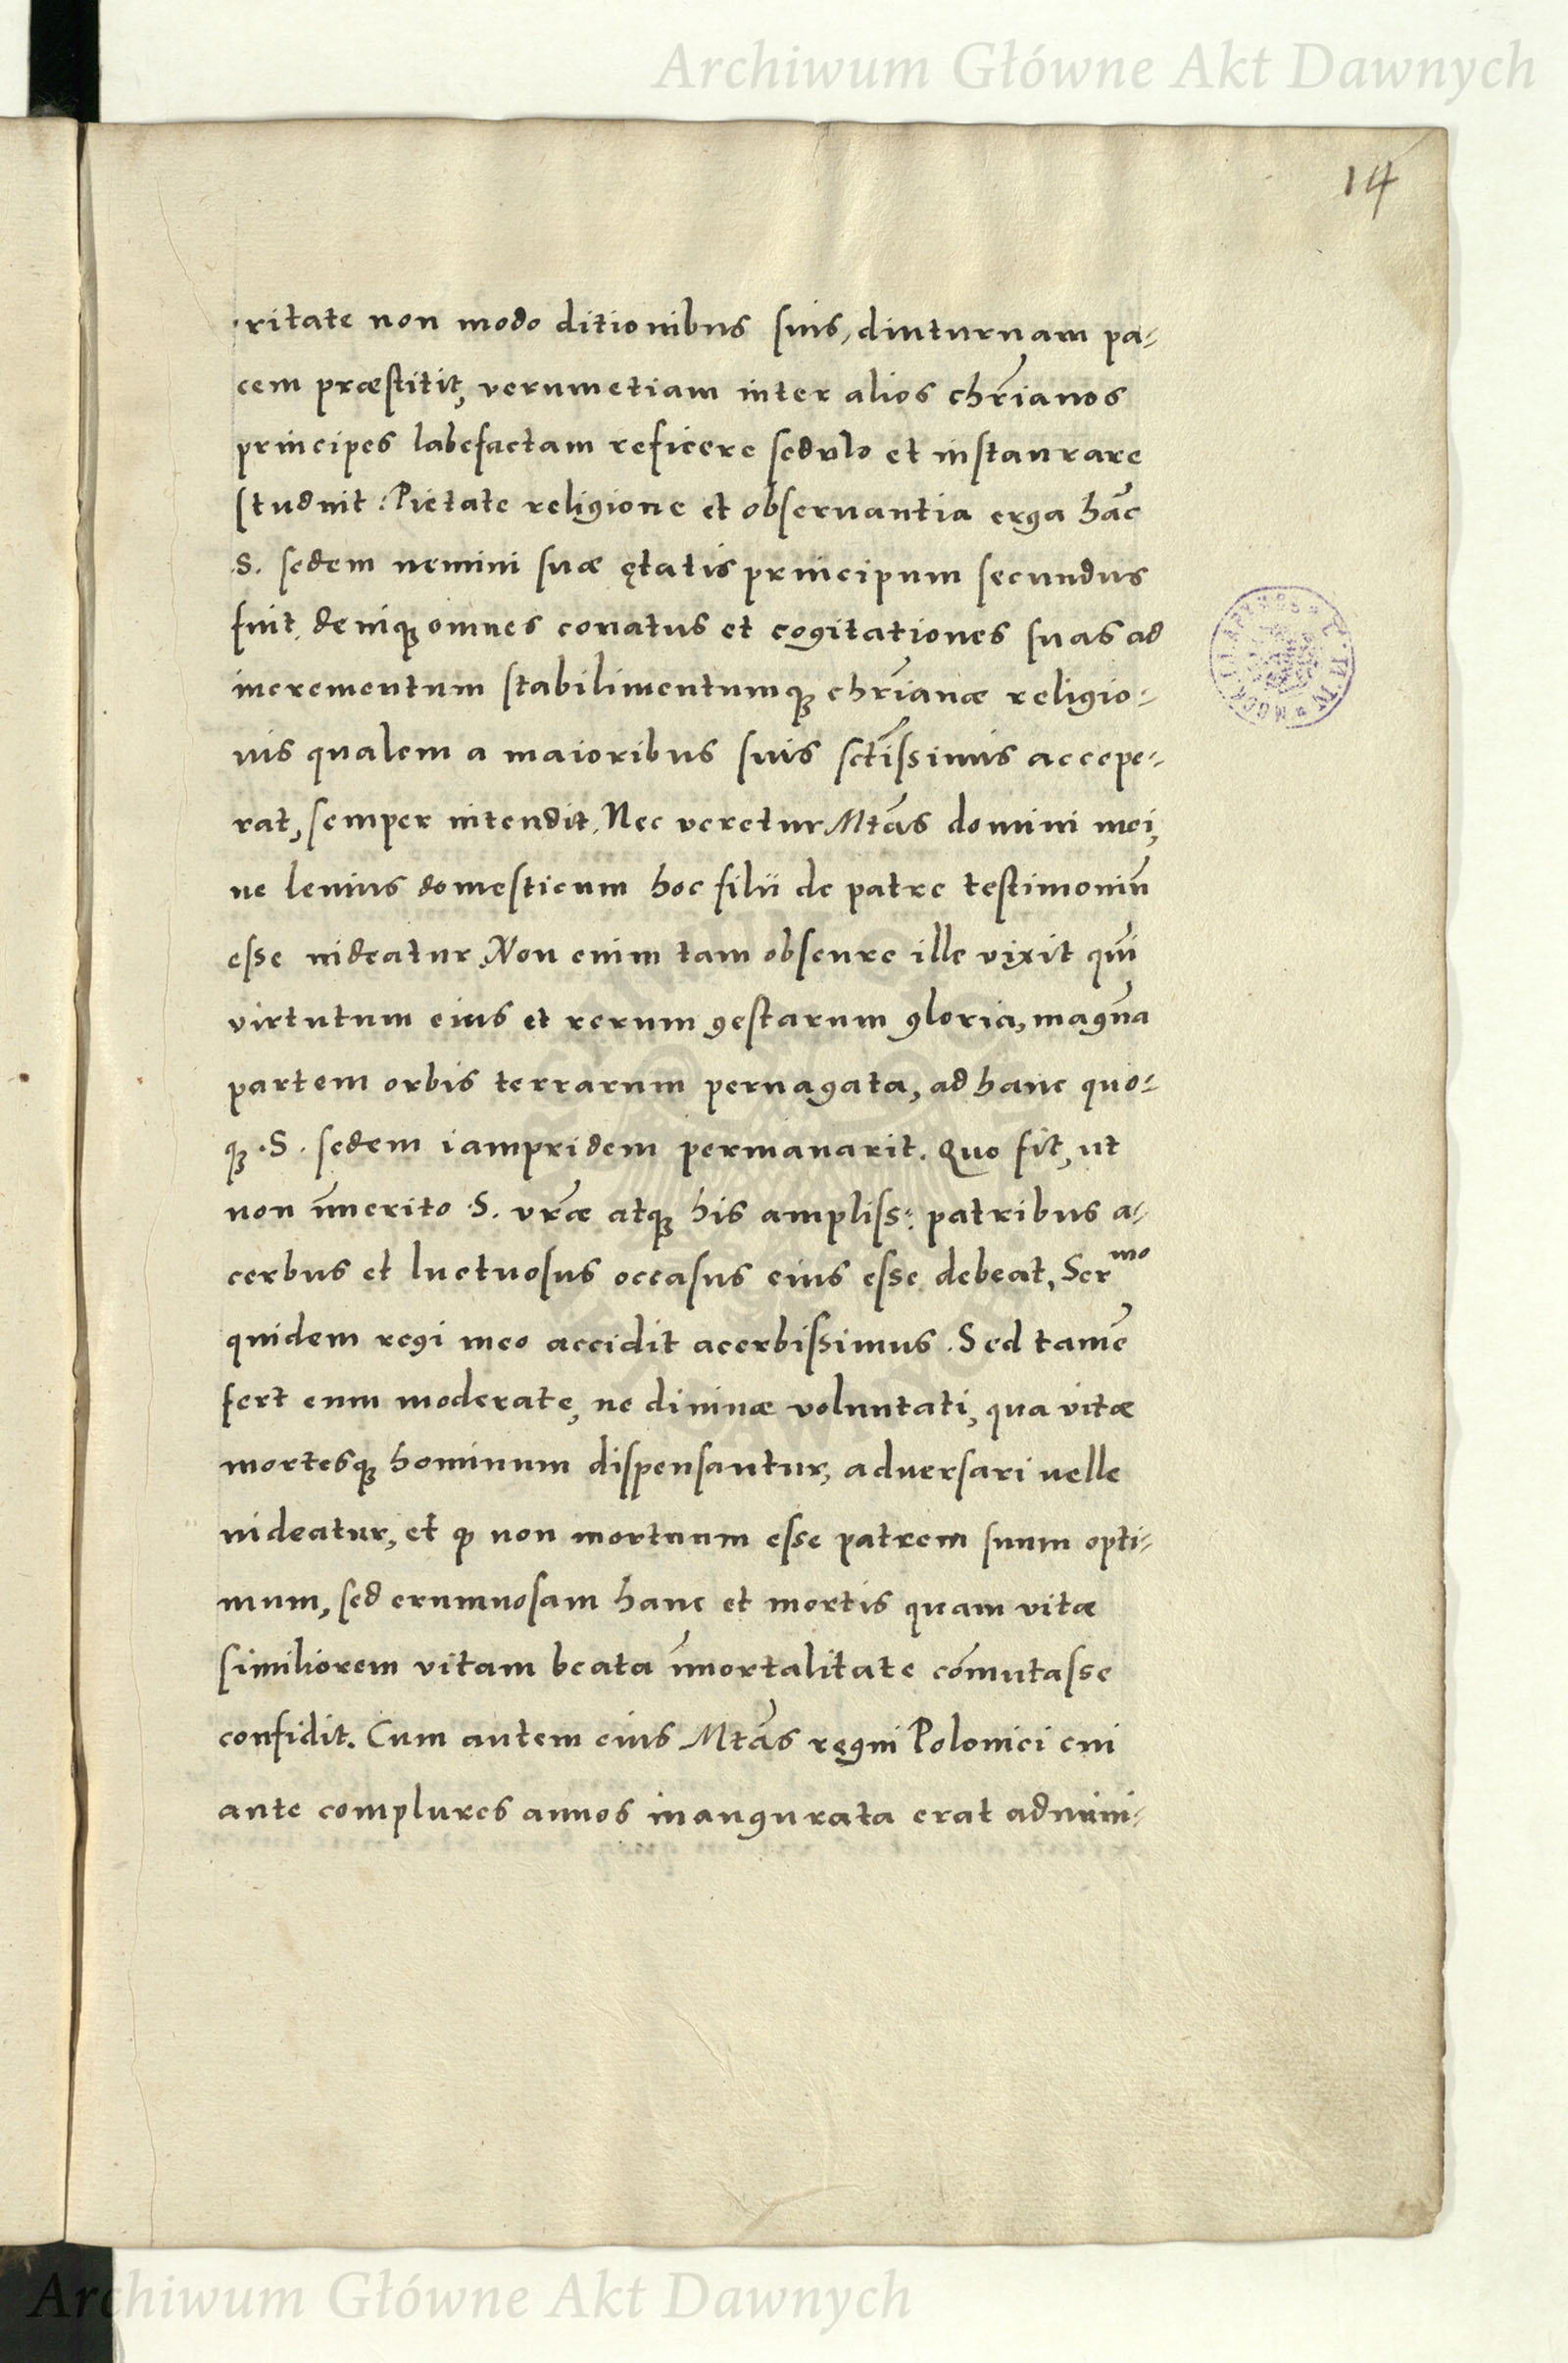 Archiwum Główne Akt Dawnych
14
ritate non modo ditionibus suis, diuturnam pa-
cem præstitit, verumetiam inter alios chr̄ianos
principes labefactam reficere sedulo et instaurare
studuit: Pietate religione et obseruantia erga hāc
S. sedem nemini suæ ętatis principum secundus
fuit, deniqꝫ omnes conatus et cogitationes suas ad
incrementum stabilimentumqꝫ chr̄ianæ religio-
nis qualem a maioribus suis sct̄issimis accepe-
rat, semper intendit. Nec veretur Mtās domini mei,
ne leuius domesticum hoc filii de patre testimoniū
esse uideatur. Non enim tam obscure ille vixit qūi
virtutum eius et rerum gestarum gloria, magnā
partem orbis terrarum peruagata, ad hanc quo-
qꝫ S. sedem iampridem permanarit. Quo fit, ut
non īmerito S. vrāe atqꝫ his ampliss: patribus a-
cerbus et luctuosus occasus eius esse debeat, Ser^mo
quidem regi meo accidit acerbissimus. Sed tamē
fert eum moderate, ne diuinæ voluntati, qua vitæ
mortesqꝫ hominum dispensantur, aduersari uelle
uideatur, et ꝙ non mortuum esse patrem suum opti-
mum, sed erumnosam hanc et mortis quam vitæ
similiorem vitam beata īmortalitate cōmutasse
confidit. Cum autem eius Mtās regni Polonici cui
ante complures annos inaugurata erat admini-
Archiwum Główne Akt Dawnych